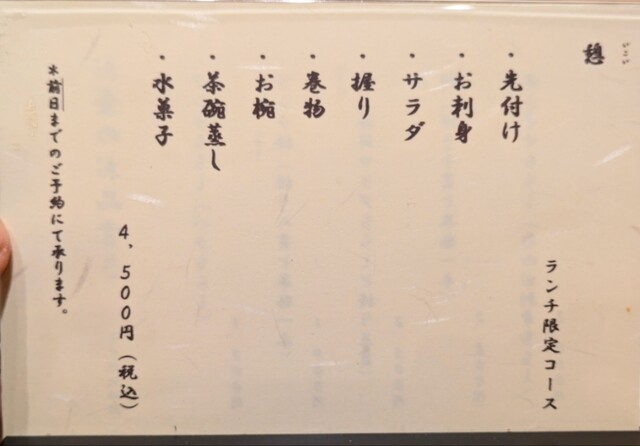 憩
いこい
ランチ限定コース
・先付け
・お刺身
・サラダ
・握り
・巻物
・お椀
・茶碗蒸し
・水菓子
4,500円(税込)
※前日までのご予約にて承ります。